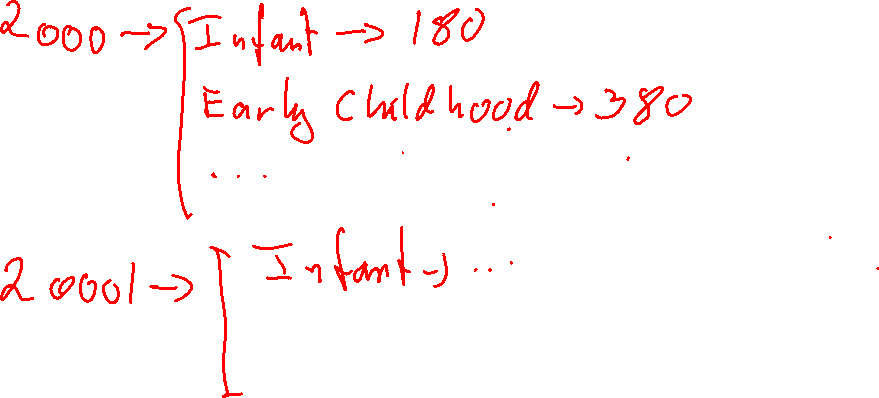 2000 → Infant → 180
Early Childhood → 380
...
20001 → [ Infant → ...